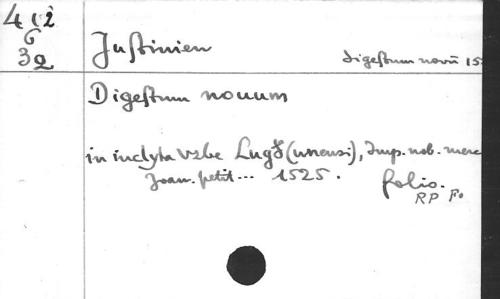 412
6
32
Justinien Digestum novū 15
Digestum nouum
in inclyta Vrbe Lugd (unensi), Imp. nob. merc
Joan. petit... 1525. folio.
RP Fo